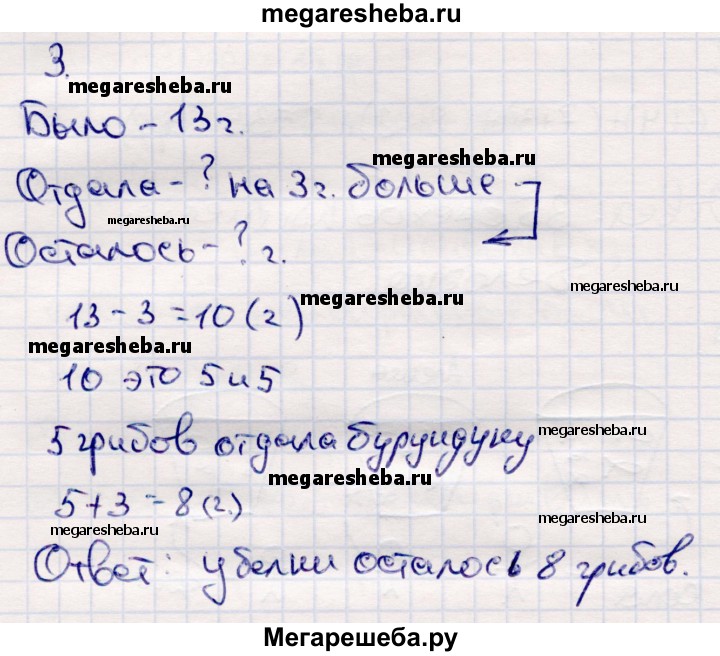 megaresheba.ru
3.
megaresheba.ru
Было - 13 г.
megaresheba.ru
Отдала - ? на 3 г. больше
megaresheba.ru
Осталось - ? г.
megaresheba.ru
13 - 3 = 10 (г)
megaresheba.ru
megaresheba.ru
10 это 5 и 5
5 грибов отдала бурундуку
megaresheba.ru
megaresheba.ru
5 + 3 = 8 (г.)
megaresheba.ru
megaresheba.ru
Ответ: у белки осталось 8 грибов.
Мегарешеба.ру